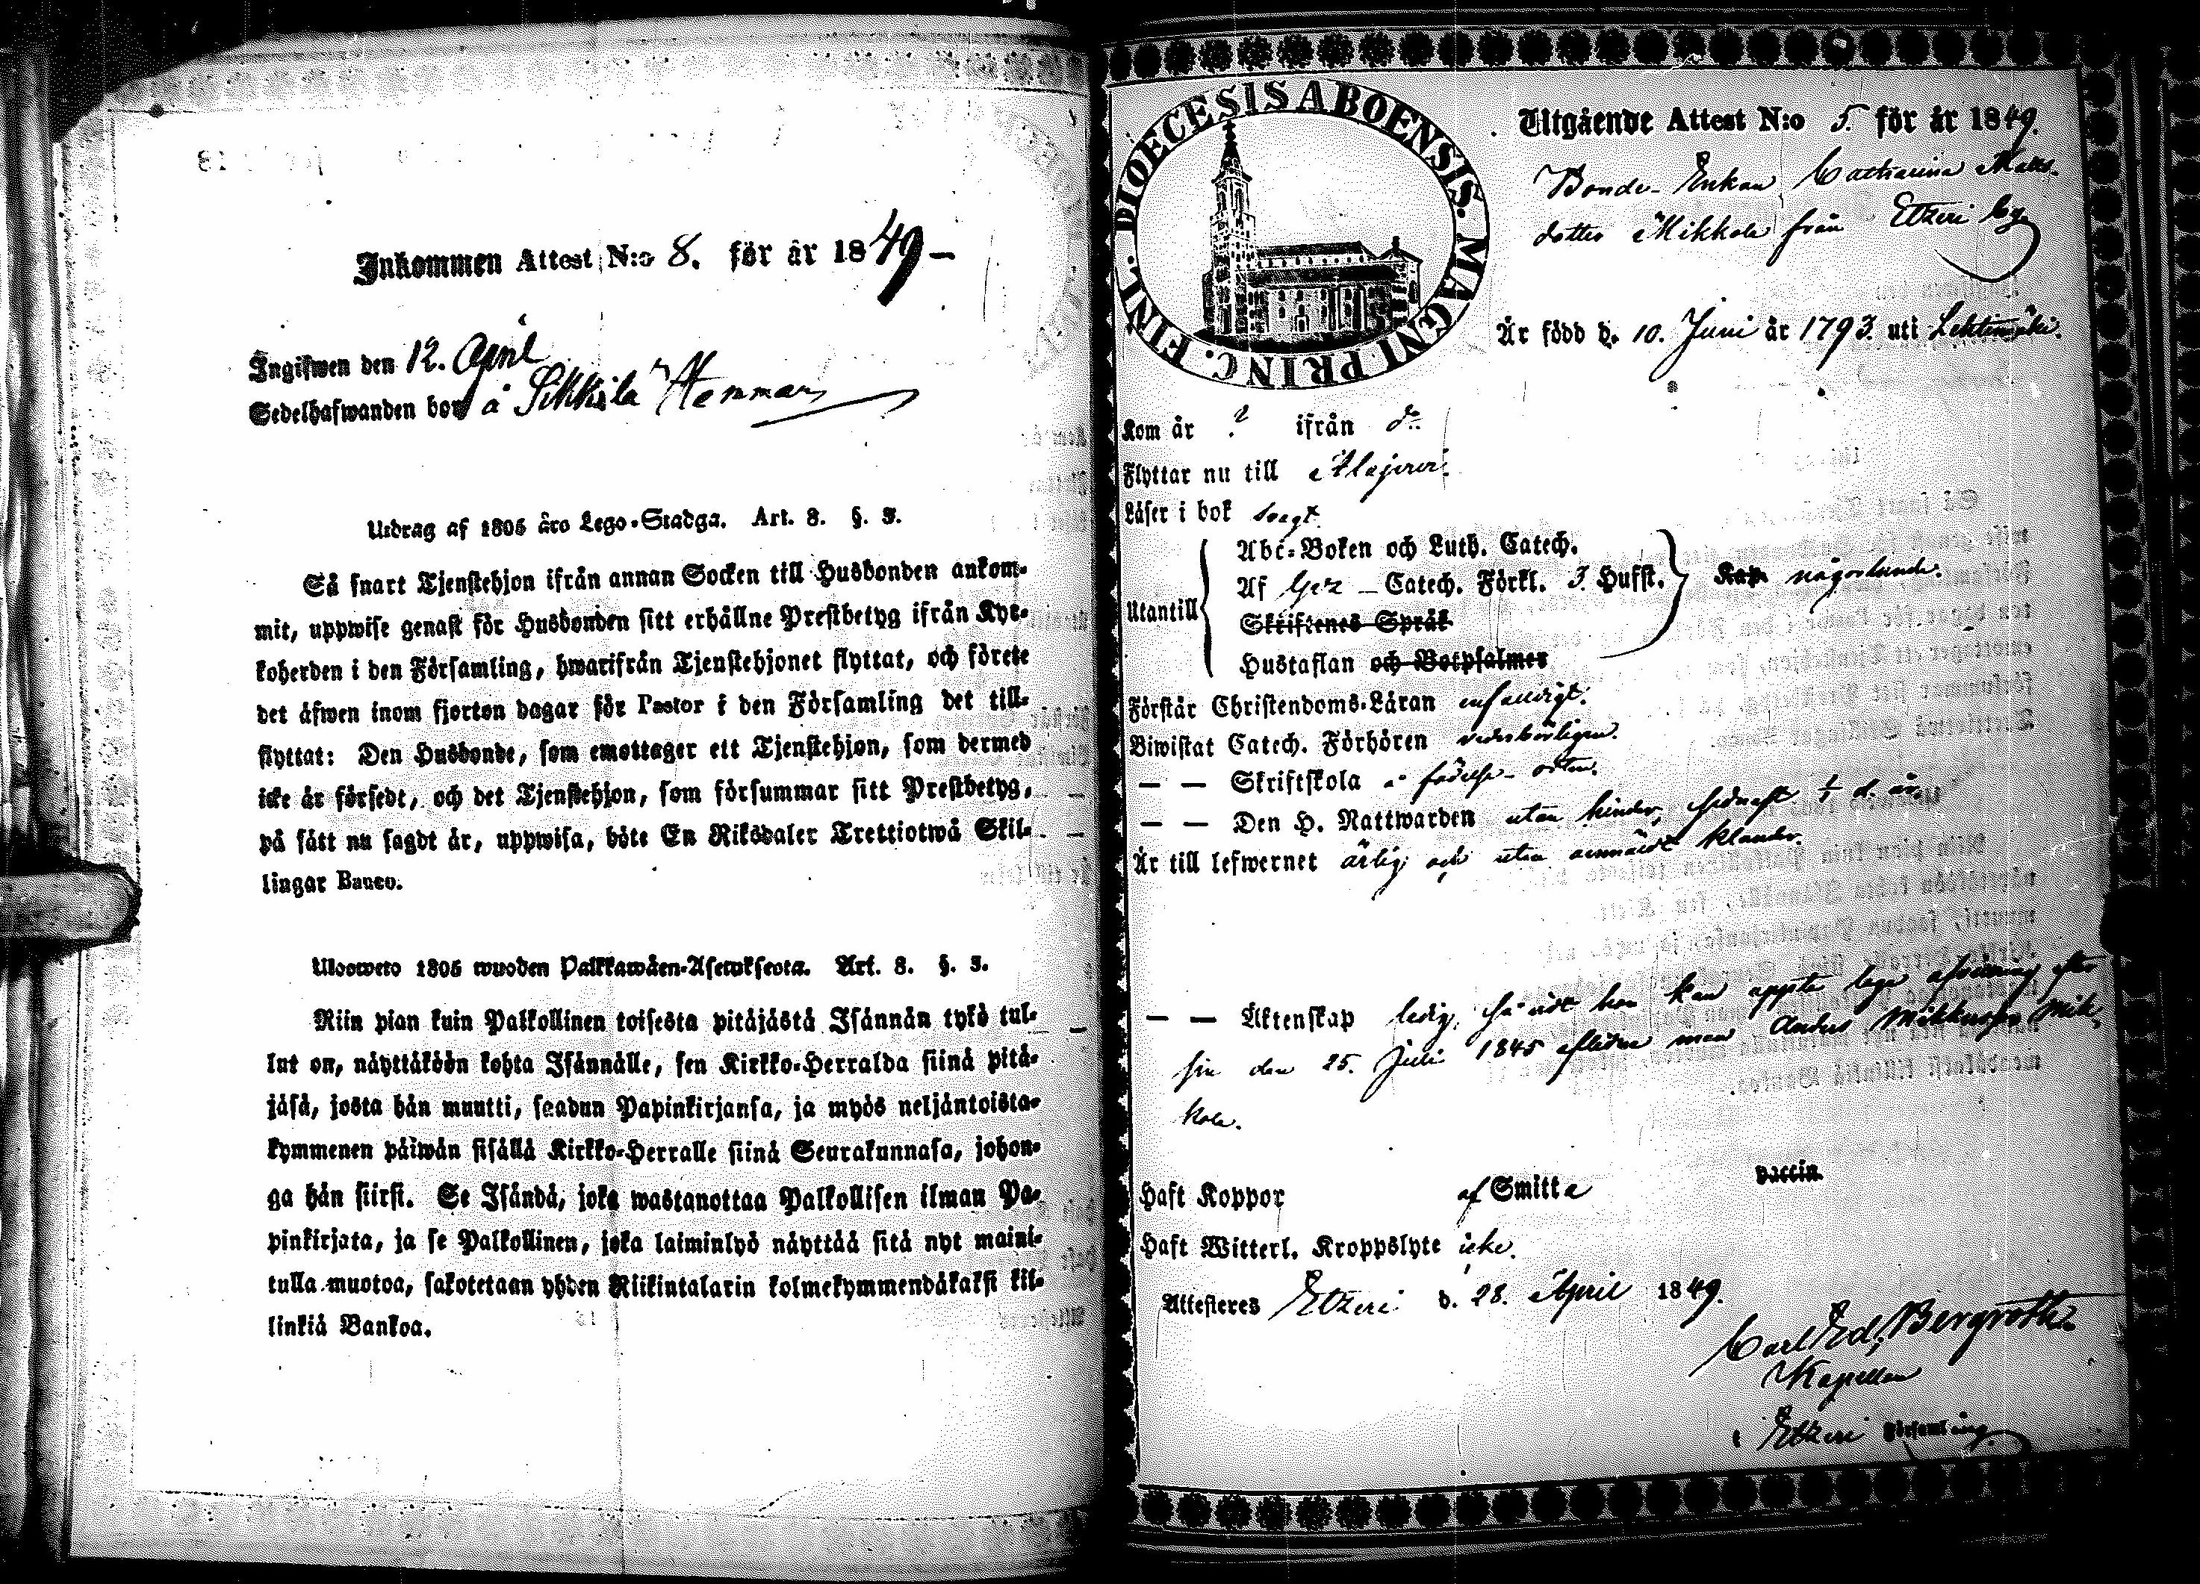 Inkommen Attest N:o 8. för år 1849 –
Ingifwen den 12. April
Sedelhafwanden bor å Sikkila Hemman
Utdrag af 1805 års Lego-Stadga. Art. 8. §. 3.
Så snart Tjenstehjon ifrån annan Socken till Husbonden ankom-
mit, uppwise genast för Husbonden sitt erhållne Prestbetyg ifrån Kyr-
koherden i den Församling, hwarifrån Tjenstehjonet flyttat, och förete
det åfwen inom fjorton dagar för Pastor i den Församling det till-
flyttat: Den Husbonde, som emottager ett Tjenstehjon, som dermed
icke år försedt, och det Tjenstehjon, som försummar sitt Prestbetyg,
på sått nu sagdt år, uppwisa, böte En Riksdaler Trettiotwå Skil-
lingar Banco.
Ulosweto 1805 wuoden Palkkawåen-Asetuksesta. Art. 8. §. 3.
Niin pian kuin Palkollinen toisesta pitåjåstå Isånnån tykö tul-
lut on, nåyttåköön kohta Isånnålle, sen Kirkko-Herralda siinå pitå-
jåså, josta hån muutti, saadun Papinkirjansa, ja myös neljåntoista-
kymmenen påiwån sisållå Kirkko-Herralle siinå Seurakunnasa, johon-
ga hån siirsi. Se Isåndå, joka wastanottaa Palkollisen ilman Pa-
pinkirjata, ja se Palkollinen, joka laiminlyö nåyttåå sitå nyt maini-
tulla muotoa, sakotetaan yhden Riikintalarin kolmekymmendåkaksi kil-
linkiå Bankoa.
DIOECESIS ABOENSIS. MAGNI PRINC. FINL.
Utgående Attest N:o 5. för år 1849.
Bonde-Enkan Catharina Matts-
dotter Mikkola från Etzeri by
Är född d. 10. Juni år 1793. uti Lehtimäki.
Kom år ? ifrån d:o
Flyttar nu till Alajervi.
Läser i bok svagt
Utantill
Abc-Boken och Luth. Catech.
Af Catech. Förkl. 3. Hufst.
Skriftenes Språk
Hustaflan och Botpsalmer
någorlunda.
Förstår Christendoms-Läran enfaldigt.
Biwistat Catech. Förhören vederbörligen.
— — Skriftskola å födelse-orten.
— — Den H. Nattwarden utan hinder, sednast 1/1 d. år.
Är till lefwernet ärlig och utan anmäldt klander.
— — Äktenskap ledig, så vidt hon kan uppte laga afvittring efter
sin den 25. Juli 1845 aflidne man Anders Mikkelsson Mik-
kola.
Haft Koppor af Smitta vaccin.
Haft Witterl. Kroppslyte icke.
Attesteres Etzeri d. 28. April 1849.
Carl Ed. Bergroth
Kapellan
i Etzeri Församling.